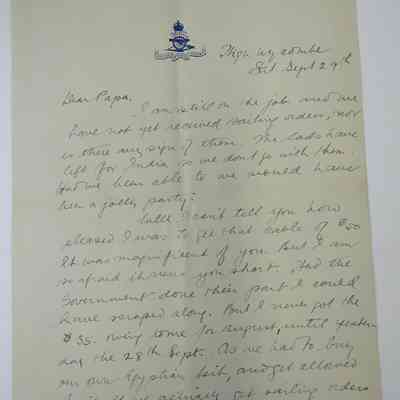 High Wycombe
Sat. Sept 29th
Dear Papa,
I am still on the job and we
have not yet received sailing orders, nor
is there any sign of them. The lads have
left for India so we dont go with them.
Had we been able to we would have
been a jolly party.
Well I can't tell you how
pleased I was to get that cable of $50
It was magnificent of you. But I am
so afraid it runs you short. Had the
Government done their part I could
have scraped along. But I never got the
$35. owing to me for August, until yester-
day the 28th Sept. As we had to buy
our own Egyptian kit, and get allowed
sailing orders